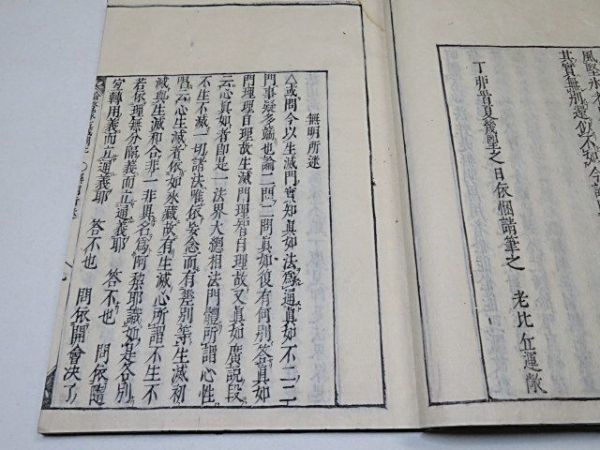 其實無別
丁卯
日依
請筆之
老比丘運敞
無明所迷
或問今以生滅門實知眞如法爲通眞如不二二
門事疑多端也論二門二門眞如復有何別答眞如
門理理自理故生滅門理智自理故又眞如廣說段
云心眞如者即是一法界大總相法門體所謂心性
不生不滅一切諸法唯依妄念而有差別等生滅初
唱云心生滅者依如來藏故有生滅心所謂不生不
滅與生滅和合非一非異名爲阿梨耶識如是各別
若依理無分隔義而立通義耶 答不也 問依隨
宜轉用義而立通義耶 答不也 問依開會決了